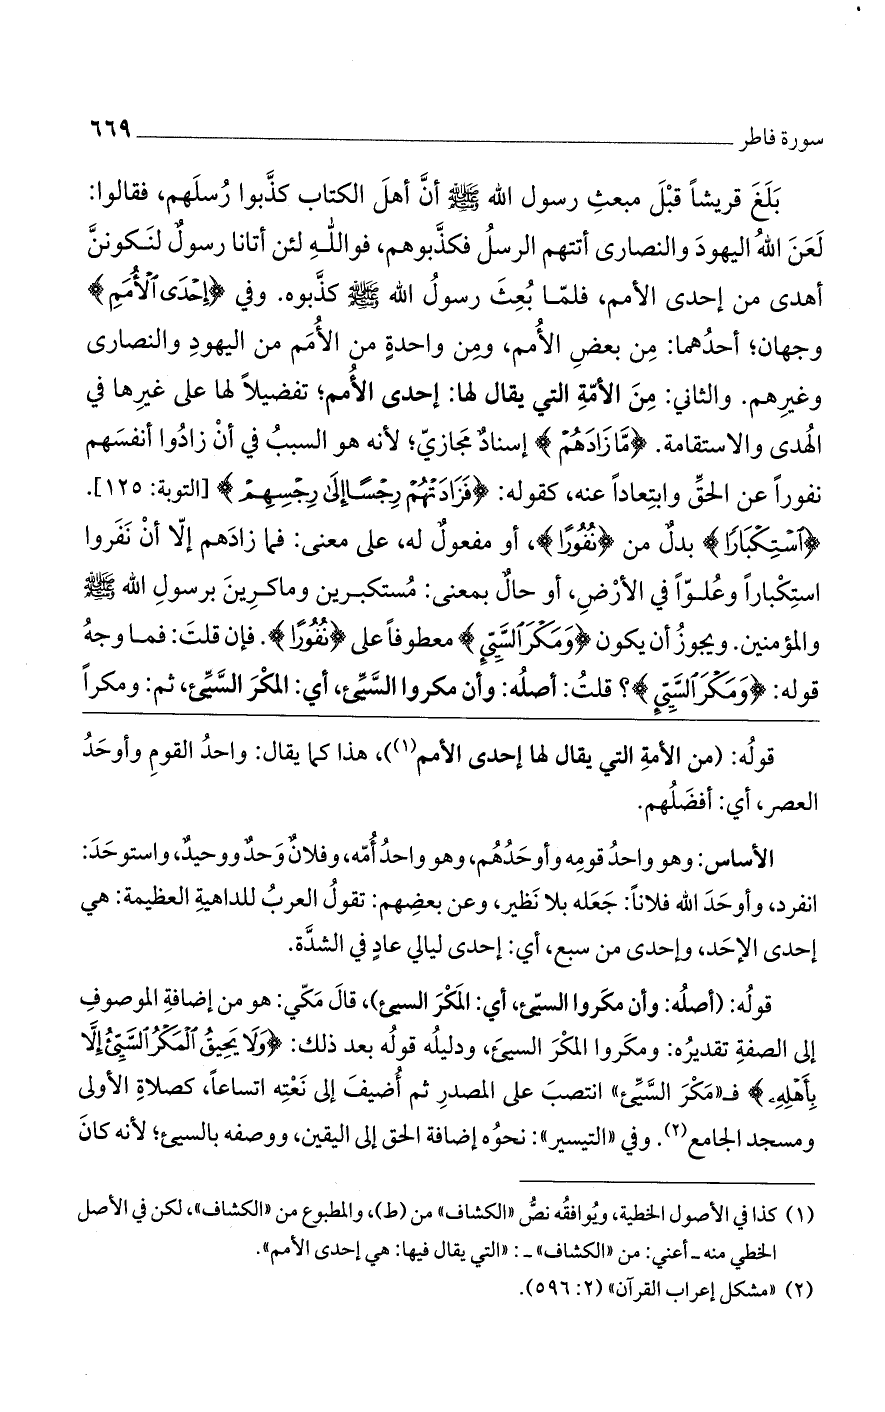 سورة فاطر ٦٦٩
بَلَغَ قريشاً قبْلَ مبعثِ رسول الله ﷺ أنَّ أهلَ الكتاب كذَّبوا رُسلَهم، فقالوا:
لَعَنَ اللهُ اليهودَ والنصارى أتتهم الرسلُ فكذَّبوهم، فواللـهِ لئن أتانا رسولٌ لنَـكوننَّ
أهدى من إحدى الأمم، فلمّـا بُعِثَ رسولُ الله ﷺ كذَّبوه. وفي ﴿إِحْدَى ٱلْأُمَمِ﴾
وجهان؛ أحدُهما: مِن بعضِ الأُمم، ومِن واحدةٍ من الأُمَم من اليهودِ والنصارى
وغيرِهم. والثاني: مِنَ الأمّةِ التي يقال لها: إحدى الأُمم؛ تفضيلاً لها على غيرِها في
الهُدى والاستقامة. ﴿مَّا زَادَهُمْ﴾ إسنادٌ مجَازيّ؛ لأنه هو السببُ في أنْ زادُوا أنفسَهم
نفوراً عن الحقِّ وابتِعاداً عنه، كقوله: ﴿فَزَادَتْهُمْ رِجْسًا إِلَىٰ رِجْسِهِمْ﴾ [التوبة: ١٢٥].
﴿ٱسْتِكْبَارًا﴾ بدلٌ من ﴿نُفُورًا﴾، أو مفعولٌ له، على معنى: فما زادَهم إلّا أنْ نَفَروا
استِكْباراً وعُلـوّاً في الأرْضِ، أو حالٌ بمعنى: مُستكبـرين وماكـرِينَ برسولِ الله ﷺ
والمؤمنين. ويجوزُ أن يكون ﴿وَمَكْرَ ٱلسَّيِّئِ﴾ معطوفاً على ﴿نُفُورًا﴾. فإن قلتَ: فمـا وجهُ
قوله: ﴿وَمَكْرَ ٱلسَّيِّئِ﴾؟ قلتُ: أصلُه: وأن مكروا السَّيِّئ، أي: المكْرَ السَّيِّئ، ثم: ومكراً
قولُه: (من الأمةِ التي يقال لها إحدى الأمم(١))، هذا كما يقال: واحدُ القومِ وأوحَدُ
العصر، أي: أفضَلُهم.
الأساس: وهو واحدُ قومِه وأوحَدُهُم، وهو واحدُ أُمّه، وفلانٌ وَحدٌ ووحيدٌ، واستوحَدَ:
انفرد، وأوحَدَ الله فلاناً: جَعَله بلا نَظير، وعن بعضِهم: تقولُ العربُ للداهيةِ العظيمة: هي
إحدى الإحَد، وإحدى من سبع، أي: إحدى ليالي عادٍ في الشدَّة.
قولُه: (أصلُه: وأن مكَروا السيّئ، أي: المَكْرَ السيئ)، قالَ مَكّي: هو من إضافةِ الموصوفِ
إلى الصفةِ تقديرُه: ومكَروا المكْرَ السيئَ، ودليلُه قولُه بعد ذلك: ﴿وَلَا يَحِيقُ ٱلْمَكْرُ ٱلسَّيِّئُ إِلَّا
بِأَهْلِهِۦ﴾ فـ«مَكْرَ السَّيِّئ» انتصبَ على المصدرِ ثم أُضيفَ إلى نَعْتِه اتساعاً، كصلاةِ الأولى
ومسجد الجامع(٢). وفي «التيسير»: نحوُه إضافة الحق إلى اليقين، ووصفه بالسيئ؛ لأنه كانَ
(١) كذا في الأصول الخطية، ويُوافقُه نصُّ «الكشاف» من (ط)، والمطبوع من «الكشاف»، لكن في الأصل
الخطي منه ـ أعني: من «الكشاف» ـ : «التي يقال فيها: هي إحدى الأمم».
(٢) «مشكل إعراب القرآن» (٢: ٥٩٦).